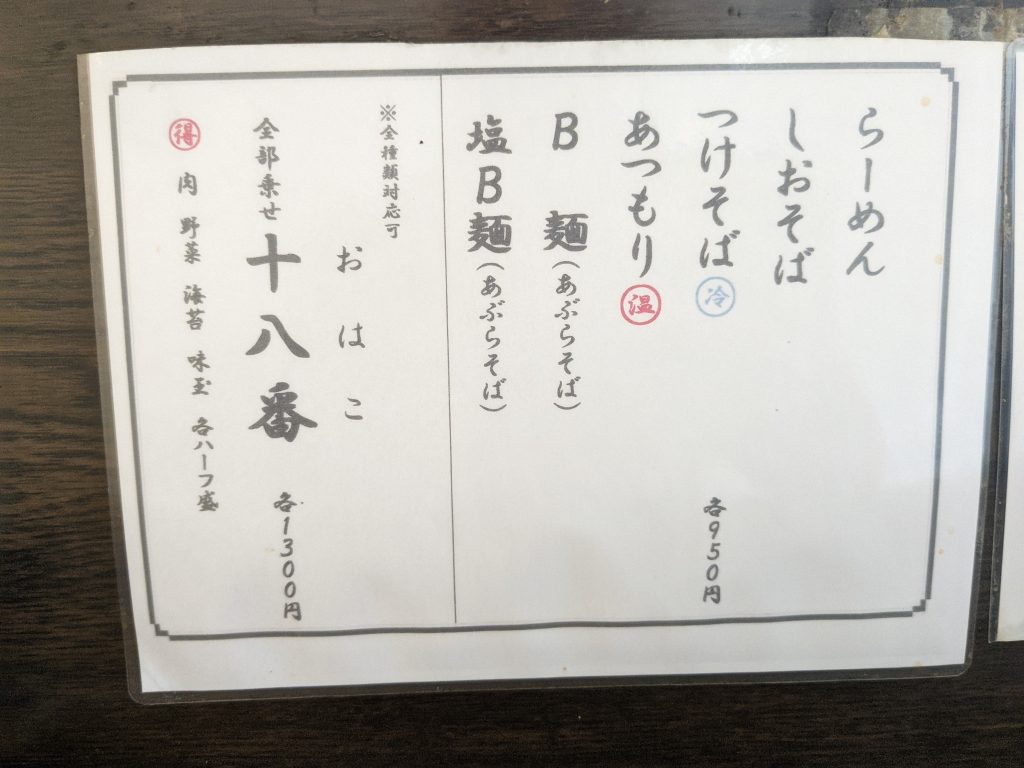 らーめん
しおそば
つけそば㊥冷
あつもり温
B 麺(あぶらそば)
塩B麺(あぶらそば)
各950円
※全種類対応可
おはこ
全部乗せ十八番
各1300円
得 肉 野菜 海苔 味玉 各ハーフ盛